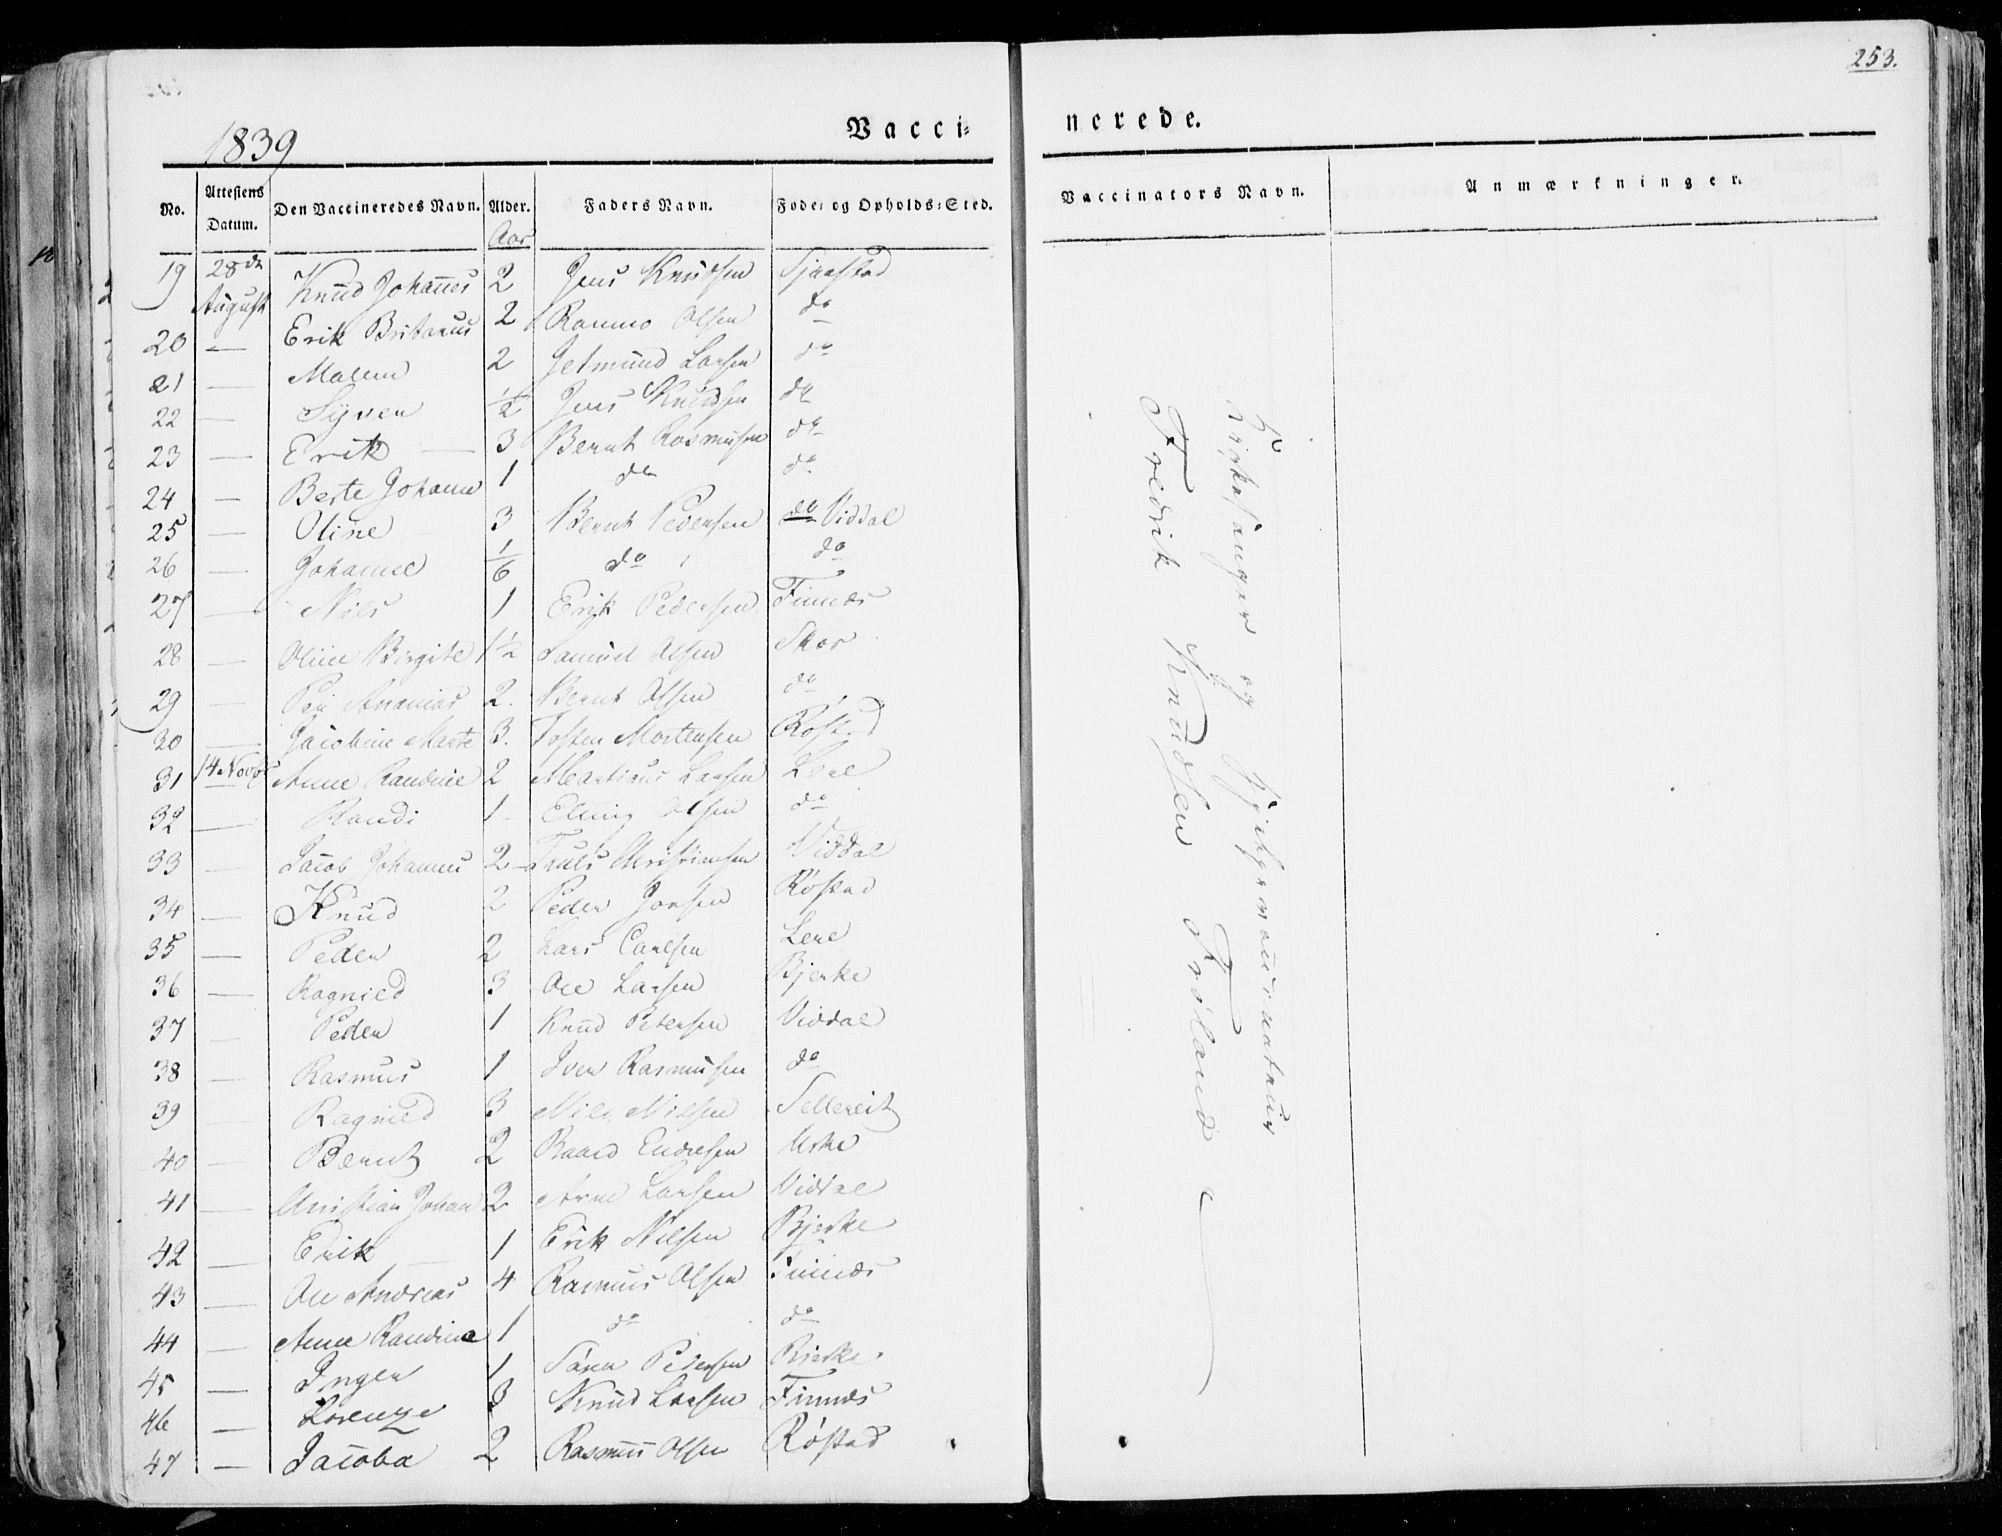 253.
1839
Vacci-
nerede.
No. Attestens Datum. Den Vaccineredes Navn. Alder. Faders Navn. Føde- og Opholds-Sted.
Aar
Vaccinators Navn. Anmærkninger.
19 28de August Knud Johannes 2 Jens Knudsen
20 — Erik 2 Rasmus Olsen do
21 — 2 Larsen do
22 — Syver 1/2 Jens Knudsen do
23 — Erik — 3 Bernt Rasmusen do
24 — Berte Johanne 1 do do
25 — Oline 3 Bernt Pedersen do Viddal
26 — Johanne 1/6 do do
27 — Nils 1 Erik Pedersen Finnæs
28 — Oline Birgite 1 1/2 Samuel Olsen Skor
29 — Ananias 2. Bernt Olsen do
30 — Jacobine Marte 3. Tosten Mortensen Røstad
31 14 Novbr Anne Randine 2 Martinus Larsen
32 — Randi 1 Elling Olsen do
33 — Jacob Johannes 2 Truls Christiansen Viddal
34 — Knud 2 Peder Jonsen Røstad
35 — Peder 2 Lars Carlsen
36 — Ragnild 3 Ole Larsen Bjerke
37 — Peder 1 Knud Petersen Viddal
38 — Rasmus 1 Iver Rasmusen do
39 — Ragnild 3 Nils Nilsen
40 — Bernt 2 Baard Endresen Urke
41 — Christian Johan 2 Arne Larsen Viddal
42 — Erik 1 Erik Nilsen Bjerke
43 — Ole Andreas 4 Rasmus Olsen Finnæs
44 — Anne Randine 1 do do
45 — Inger 1 Søren Pedersen Bjerke
46 — Lorenze 3 Knud Larsen Finnæs
47 — Jacoba 2 Rasmus Olsen Røstad
Kirkesanger og Hjelpevaccinateur
Fredrik Knudsen Frøland